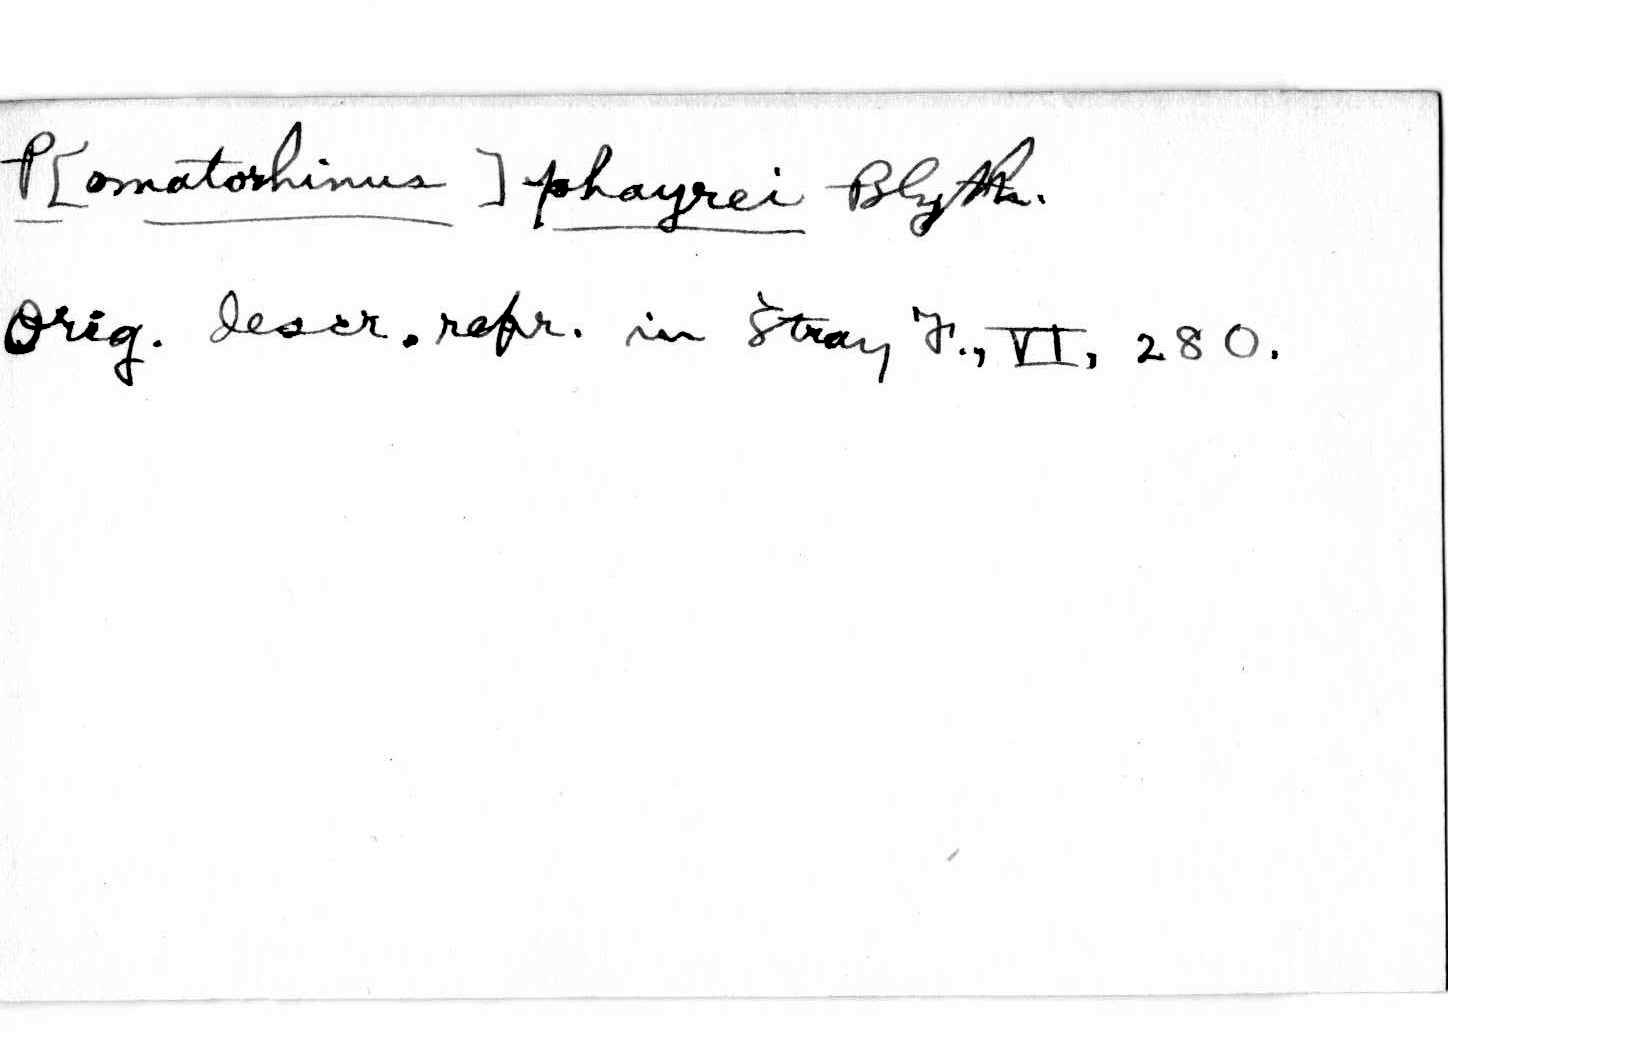 P[omatorhinus] phayrei Blyth.
Orig. descr. repr. in Stray F., VI, 280.